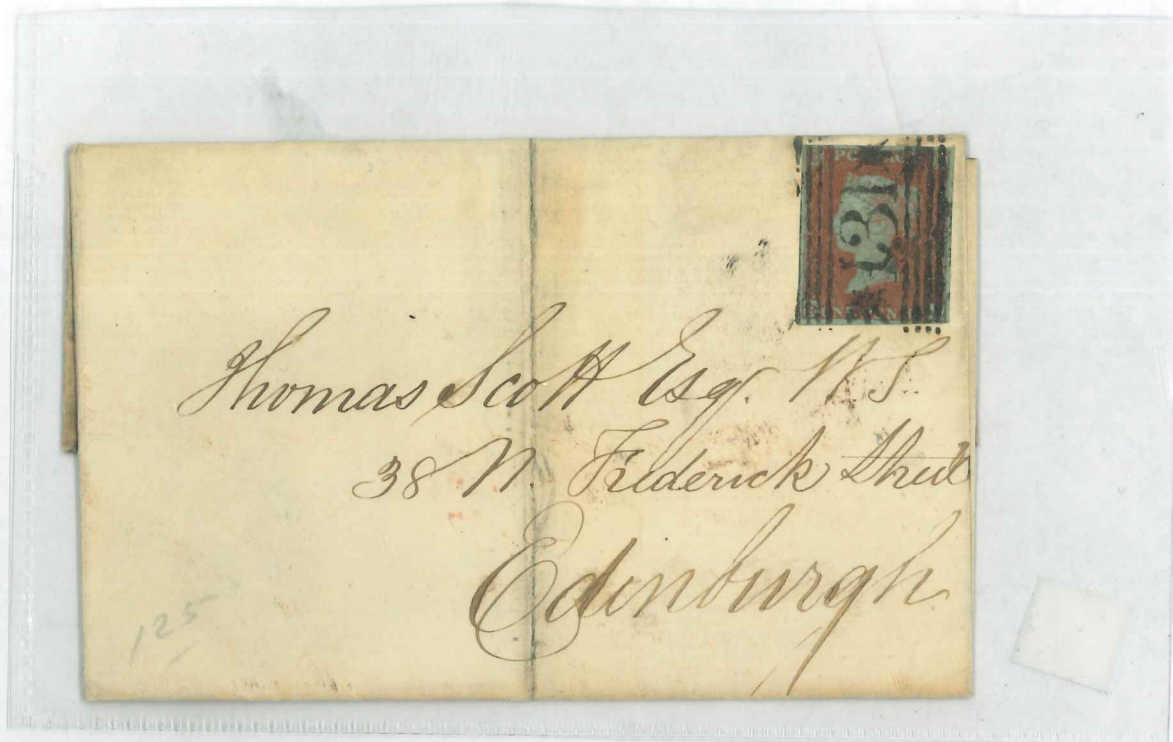 131
Thomas Scott Esqr. W.S.
38 N. Frederick Street
Edinburgh
125